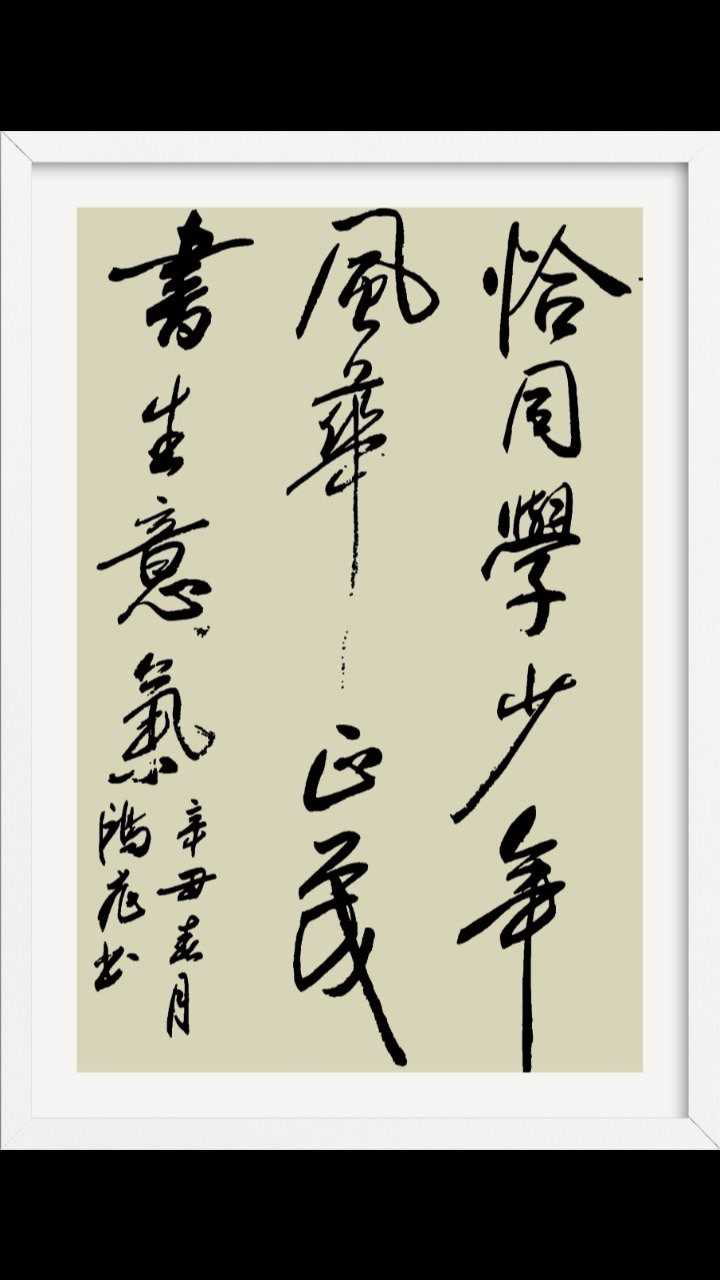 恰同學少年
風華正茂
書生意氣
辛丑春月
鴻彪书